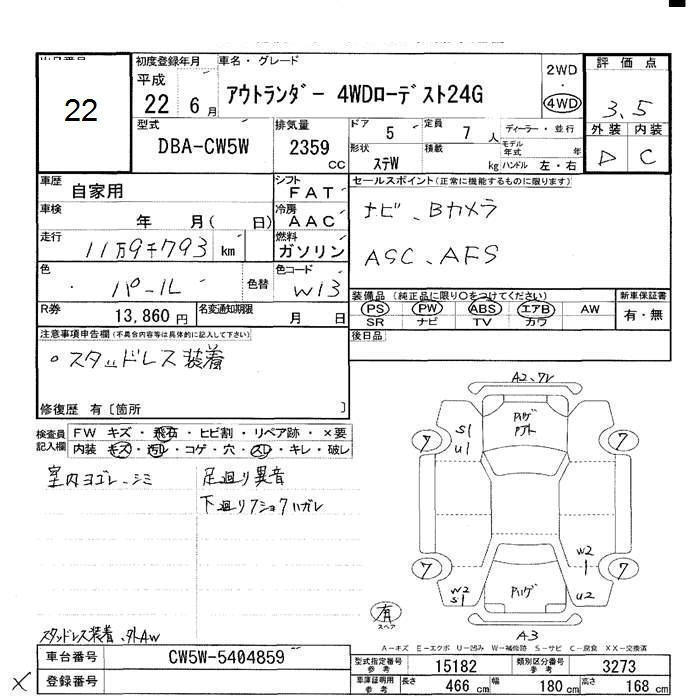 22
初度登録年月 車名・グレード
平成 22 年 6 月
アウトランダー 4WDローデスト24G
2WD ・ 4WD
評価点
3.5
外装 内装
D C
型式 DBA-CW5W
排気量 2359 CC
ドア 5
定員 7 人
形状 ステW
積載 kg
ディーラー・並行
モデル年式 年
ハンドル 左・右
車歴 自家用
シフト FAT
セールスポイント(正常に機能するものに限ります)
ナビ、Bカメラ
ASC、AFS
車検 年 月( 日)
冷房 AAC
走行 11万9千793 km
燃料 ガソリン
色 パール 色替
色コード W13
R券 13,860 円
名変通知期限 月 日
装備品(純正品に限り〇をつけてください)
PS PW ABS エアB AW
SR ナビ TV カワ
新車保証書
有・無
後日品
注意事項申告欄(不具合内容等は具体的に記入して下さい)
。スタッドレス装着
修復歴 有〔箇所 〕
検査員記入欄
FW キズ・飛石・ヒビ割・リペア跡・×要
内装 キズ・汚レ・コゲ・穴・スレ・キレ・破レ
室内ヨゴレ、シミ
足廻り異音
下廻りフショクハガレ
A2、ワレ
ハゲ
S1
U1
7
7
7
7
W2
1
W2
S1
ハゲ
U2
A3
有
スペア
スタッドレス装着、外AW
A-キズ E-エクボ U-凹み W-補修跡 S-サビ C-腐食 XX-交換済
車台番号 CW5W-5404859
登録番号
×
型式指定番号 参考 15182
類別区分番号 参考 3273
車庫証明用 参考 長さ 466 cm 幅 180 cm 高さ 168 cm